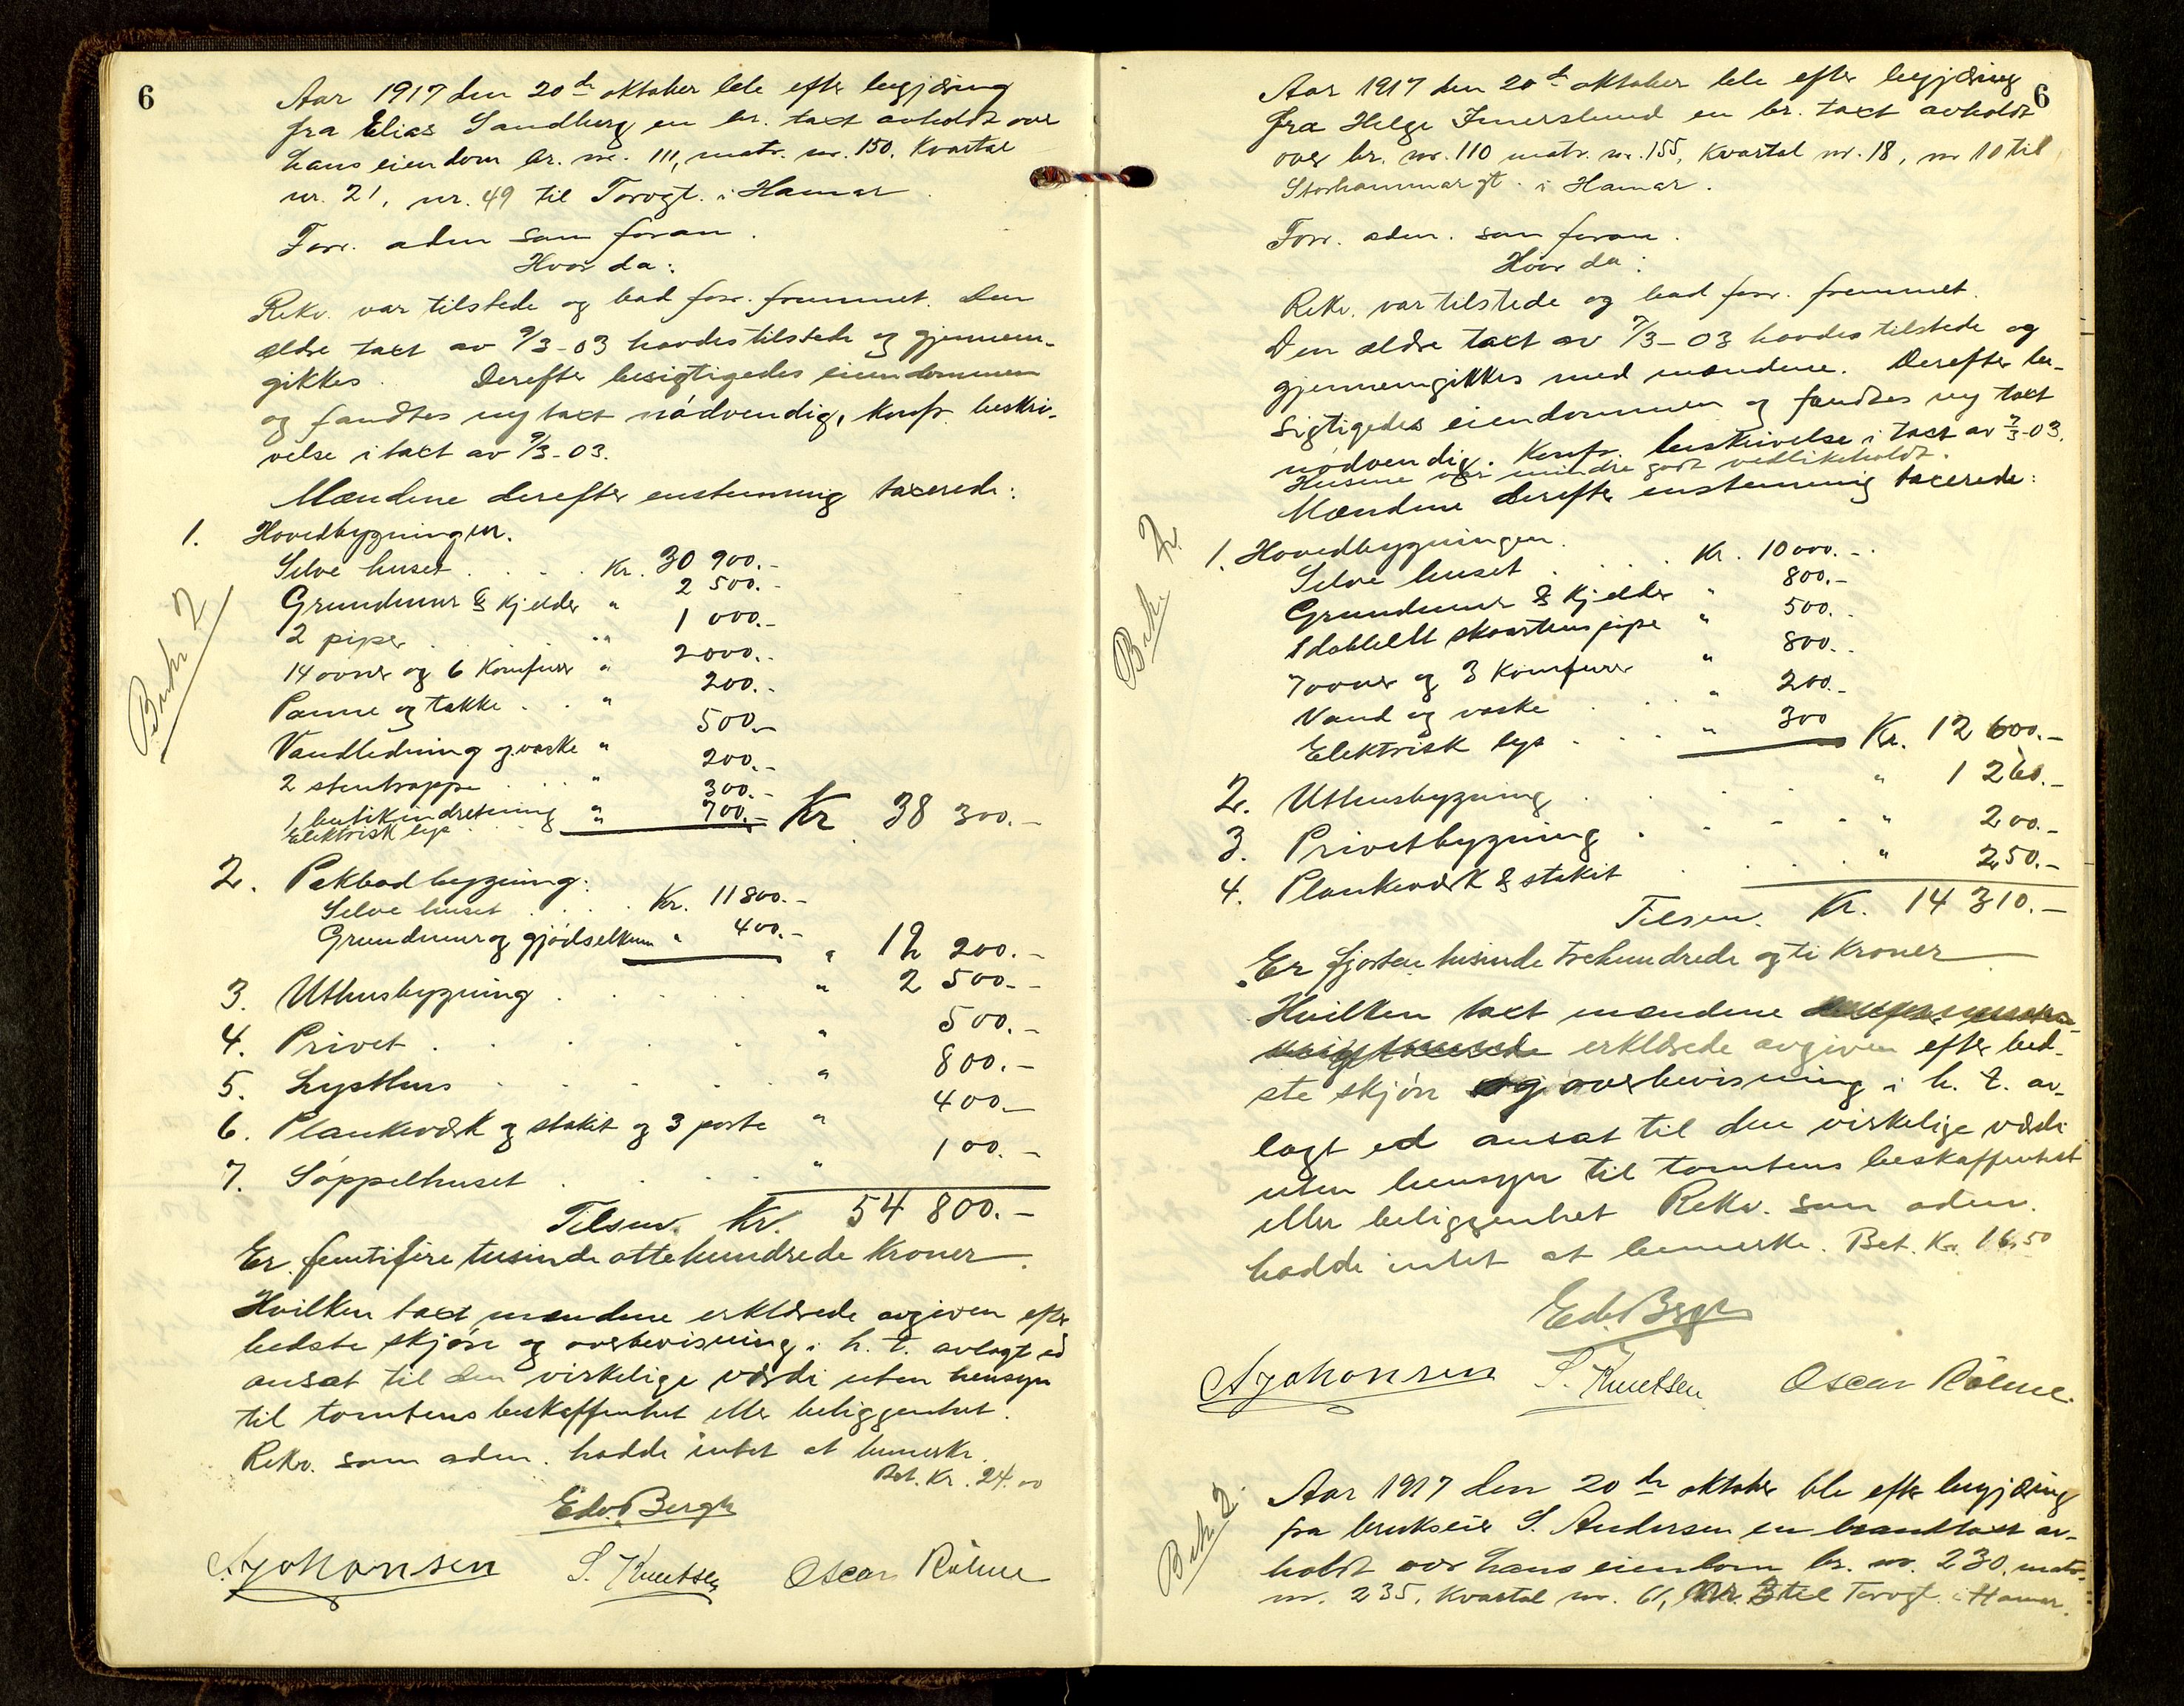 6
Aar 1917 den 20de oktober ble efter begjæring
fra Elias Sandberg en br. taxt avholdt over
hans eiendom br. nr. 111, matr. nr. 150, Kvartal
nr. 21, nr. 49 til Torvgt. i Hamar.
Forr. aden som foran.
Hvor da:
Rekv. var tilstede og bad forr. fremmet. Den
ældre taxt av 9/3-03 havdes tilstede og gjennem-
gikkes. Derefter besigtigedes eiendommen
og fandtes ny taxt nödvendig, konfr. beskri-
velse i taxt av 9/3-03.
Mændene derefter enstemmig taxerede:
1. Hovedbygningen.
Selve huset . . . . Kr. 30 900.-
Grundmur & Kjelder " 2 500.-
2 piper . . . " 1 000.-
14 ovner og 6 Komfurer " 2000.-
Panne og takke . . " 200.-
Vandledning og vaske " 500.-
2 stentrappe . . . " 200.-
1 butikindretning " 300.-
Elektrisk lys . . . " 700.- Kr. 38 300.-
2. Pakbodbygning:
Selve huset . . . . Kr. 11800.-
Grundmur og gjödselkum " 400.- " 12 200.-
3. Uthusbygning . . . . . " 2 500.-
4. Privet . . . . . . " 500.-
5. Lysthus . . . . . " 800.-
6. Plankeværk og stakit og 3 porte " 400.-
7. Söppelhuset . . . . " 100.-
Tilsm. Kr. 54 800.-
Er femtifire tusinde ottehundrede Kroner.
Hvilken taxt mændene erklærede avgiven efter
bedste skjön og overbevisning i h. t. avlagt ed
ansat til den virkelige værdi uten hensyn
til tomtens beskaffenhet eller beliggenhet.
Rekv. som aden. hadde intet at bemerke.
Bet. Kr. 24.00
Edv. Bergh
A Johansen S. Knutsen Oscar Rölme
Bet. 2
6
Aar 1917 den 20de oktober ble efter begjæring
fra Helge Imerslund en br. taxt avholdt
over br. nr. 110 matr. nr. 155, Kvartal nr. 18, nr 10 til
Storhammargt. i Hamar.
Forr. aden. som foran.
Hvor da:
Rekv. var tilstede og bad forr. fremmet.
Den ældre taxt av 7/3-03 havdes tilstede og
gjennemgikkes med mændene. Derefter be-
sigtigedes eiendommen og fandtes ny taxt
nödvendig. Konfr. beskrivelse i taxt av 7/3-03.
Husene var mindre godt vedlikeholdt.
Mændene derefter enstemmig taxerede:
1. Hovedbygningen.
Selve huset . . . . Kr. 10000.-
Grundmur & Kjelder " 800.-
1 dobbelt skorstenspipe " 500.-
7 ovner og 3 Komfurer " 800.-
Vand og vaske . . . " 200.-
Elektrisk lys . . . " 300 Kr. 12 600.-
2. Uthusbygning . . . . " 1 260.-
3. Privetbygning . . . . " 200.-
4. Plankeværk & stakit . . . . " 250.-
Tilsm. Kr. 14 310.-
Er fjorten tusinde trehundrede og ti Kroner
Hvilken taxt mændene
erklærede avgiven efter bed-
ste skjön og overbevisning i h. t. av-
lagt ed ansat til den virkelige værdi
uten hensyn til tomtens beskaffenhet
eller beliggenhet Rekv. som aden.
hadde intet at bemerke. Bet. Kr. 16.50
Edv. Bergh
A Johansen S. Knutsen Oscar Rölme.
Bet. 2
Aar 1917 den 20de oktober ble efter begjæring
fra brukseier S. Andersen en brandtaxt av-
holdt over hans eiendom br. nr. 230, matr.
nr. 235, Kvartal nr. 61, Nr. 3 til Torvgt. i Hamar.